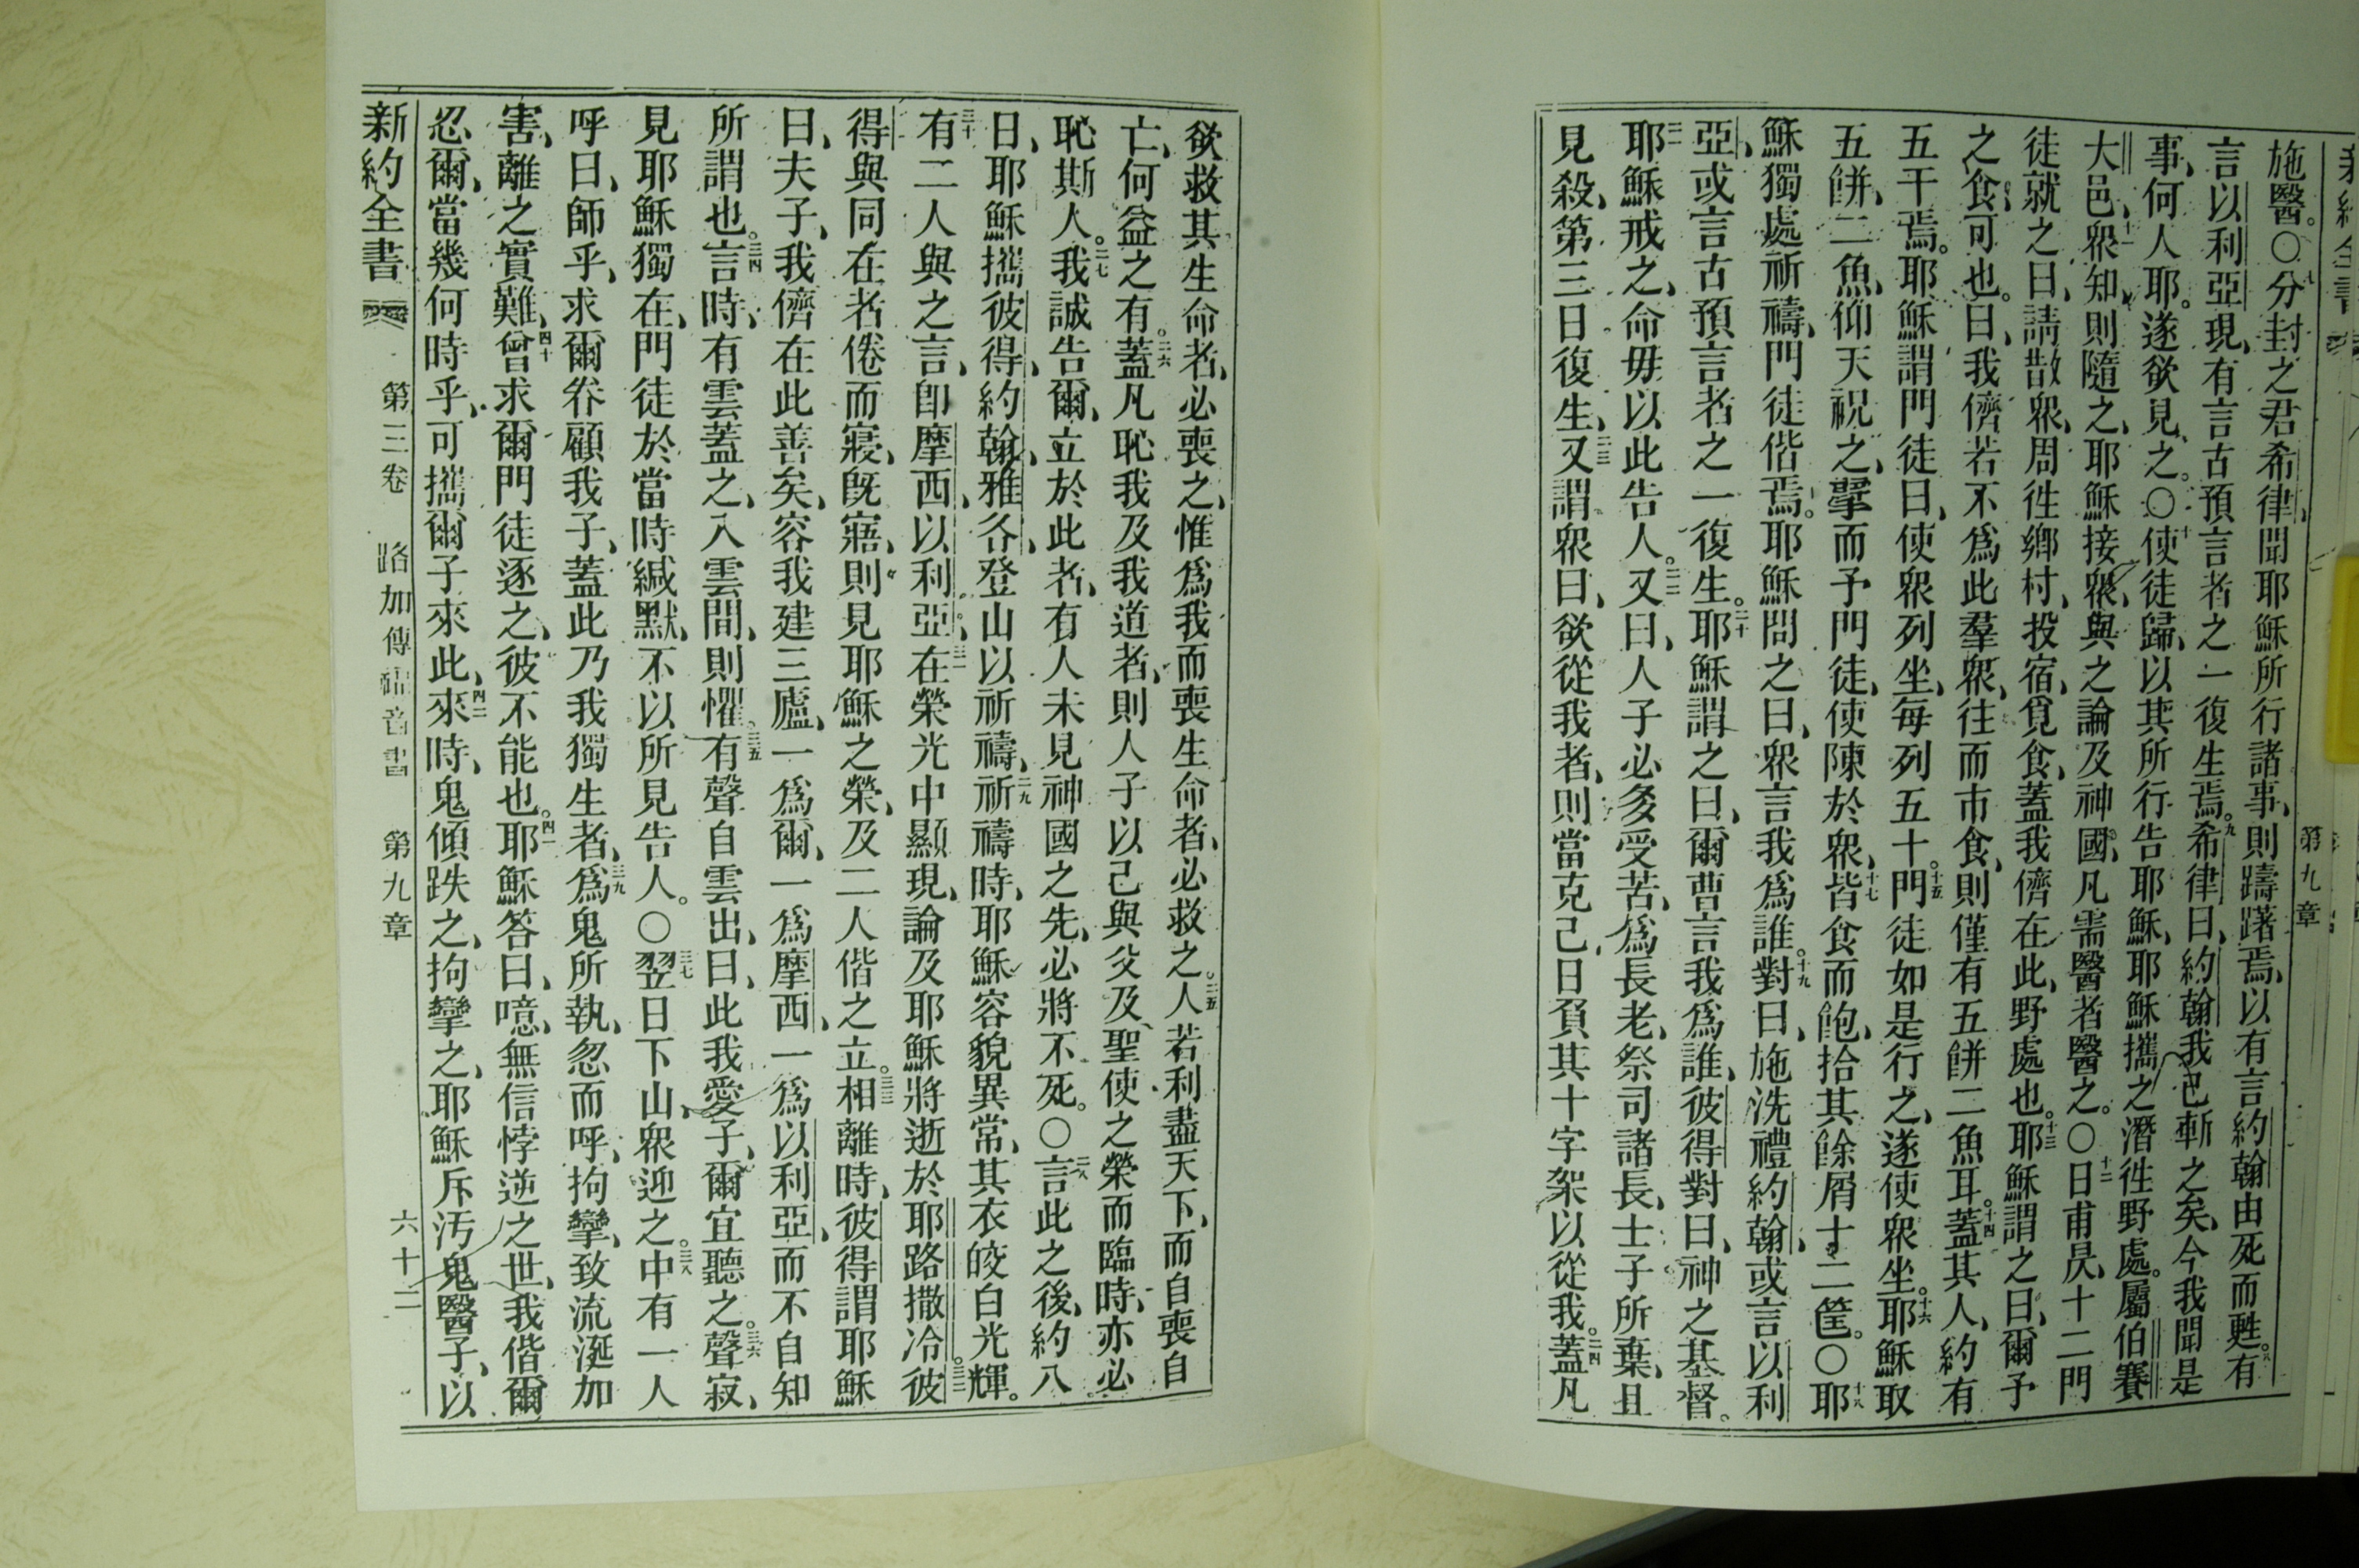 施醫。〇九分封之君希律、聞耶穌所行諸事、則躊躇焉、以有言約翰由死而甦。八有
言以利亞現、有言古預言者之一復生焉。九希律曰、約翰我已斬之矣、今我聞是
事、何人耶。遂欲見之。〇十使徒歸、以其所行告耶穌、耶穌攜之潛徃野處。屬伯賽
大邑、十一眾知、則隨之、耶穌接眾、與之論及神國、凡需醫者醫之。〇十二日甫昃、十二門
徒就之曰、請散眾、周徃鄉村、投宿、覓食、蓋我儕在此、野處也。十三耶穌謂之曰、爾予
之食可也。曰、我儕若不爲此羣眾、往而市食、則僅有五餅二魚耳。十四蓋其人、約有
五千焉。耶穌謂門徒曰、使眾列坐、每列五十。十五門徒如是行之、遂使眾坐。十六耶穌取
五餅、二魚、仰天祝之、擘而予門徒、使陳於眾、十七皆食而飽、拾其餘屑十二筐。〇十八耶
穌獨處祈禱、門徒偕焉。耶穌問之曰、眾言我爲誰。十九對曰、施洗禮約翰、或言以利
亞、或言古預言者之一復生。二十耶穌謂之曰、爾曹言我爲誰、彼得對曰、神之基督。
二一耶穌戒之、命毋以此告人。二二又曰、人子必多受苦、爲長老、祭司諸長、士子所棄、且
見殺、第三日復生、二三又謂眾曰、欲從我者、則當克己、日負其十字架以從我。二四蓋凡
第九章
欲救其生命者、必喪之、惟爲我而喪生命者、必救之。二五人若利盡天下、而自喪自
亡、何益之有。二六蓋凡恥我及我道者、則人子以己與父及聖使之榮而臨時、亦必
恥斯人。二七我誠告爾、立於此者、有人未見神國之先、必將不死。〇二八言此之後、約八
日、耶穌攜彼得、約翰、雅各、登山以祈禱、二九祈禱時、耶穌容貌異常、其衣皎白光輝。
三十有二人與之言、卽摩西、以利亞。三一在榮光中顯現、論及耶穌將逝於耶路撒冷。三二彼
得與同在者倦而寢、旣寤、則見耶穌之榮、及二人偕之立。三三相離時、彼得謂耶穌
曰、夫子、我儕在此善矣、容我建三廬、一爲爾、一爲摩西、一爲以利亞、而不自知
所謂也。三四言時、有雲蓋之、入雲間、則懼。三五有聲自雲出、曰、此我愛子、爾宜聽之。三六聲寂、
見耶穌獨在、門徒於當時緘默、不以所見告人。〇三七翌日下山、眾迎之。三八中有一人
呼曰、師乎、求爾眷顧我子、蓋此乃我獨生者、三九爲鬼所執、忽而呼、拘攣、致流涎加
害、離之實難、四十曾求爾門徒逐之、彼不能也。四一耶穌答曰、噫、無信悖逆之世、我偕爾
忍爾、當幾何時乎、可攜爾子來此、四二來時、鬼傾跌之、拘攣之、耶穌斥汚鬼醫子、以
新約全書 第三卷 路加傳福音書 第九章 六十二